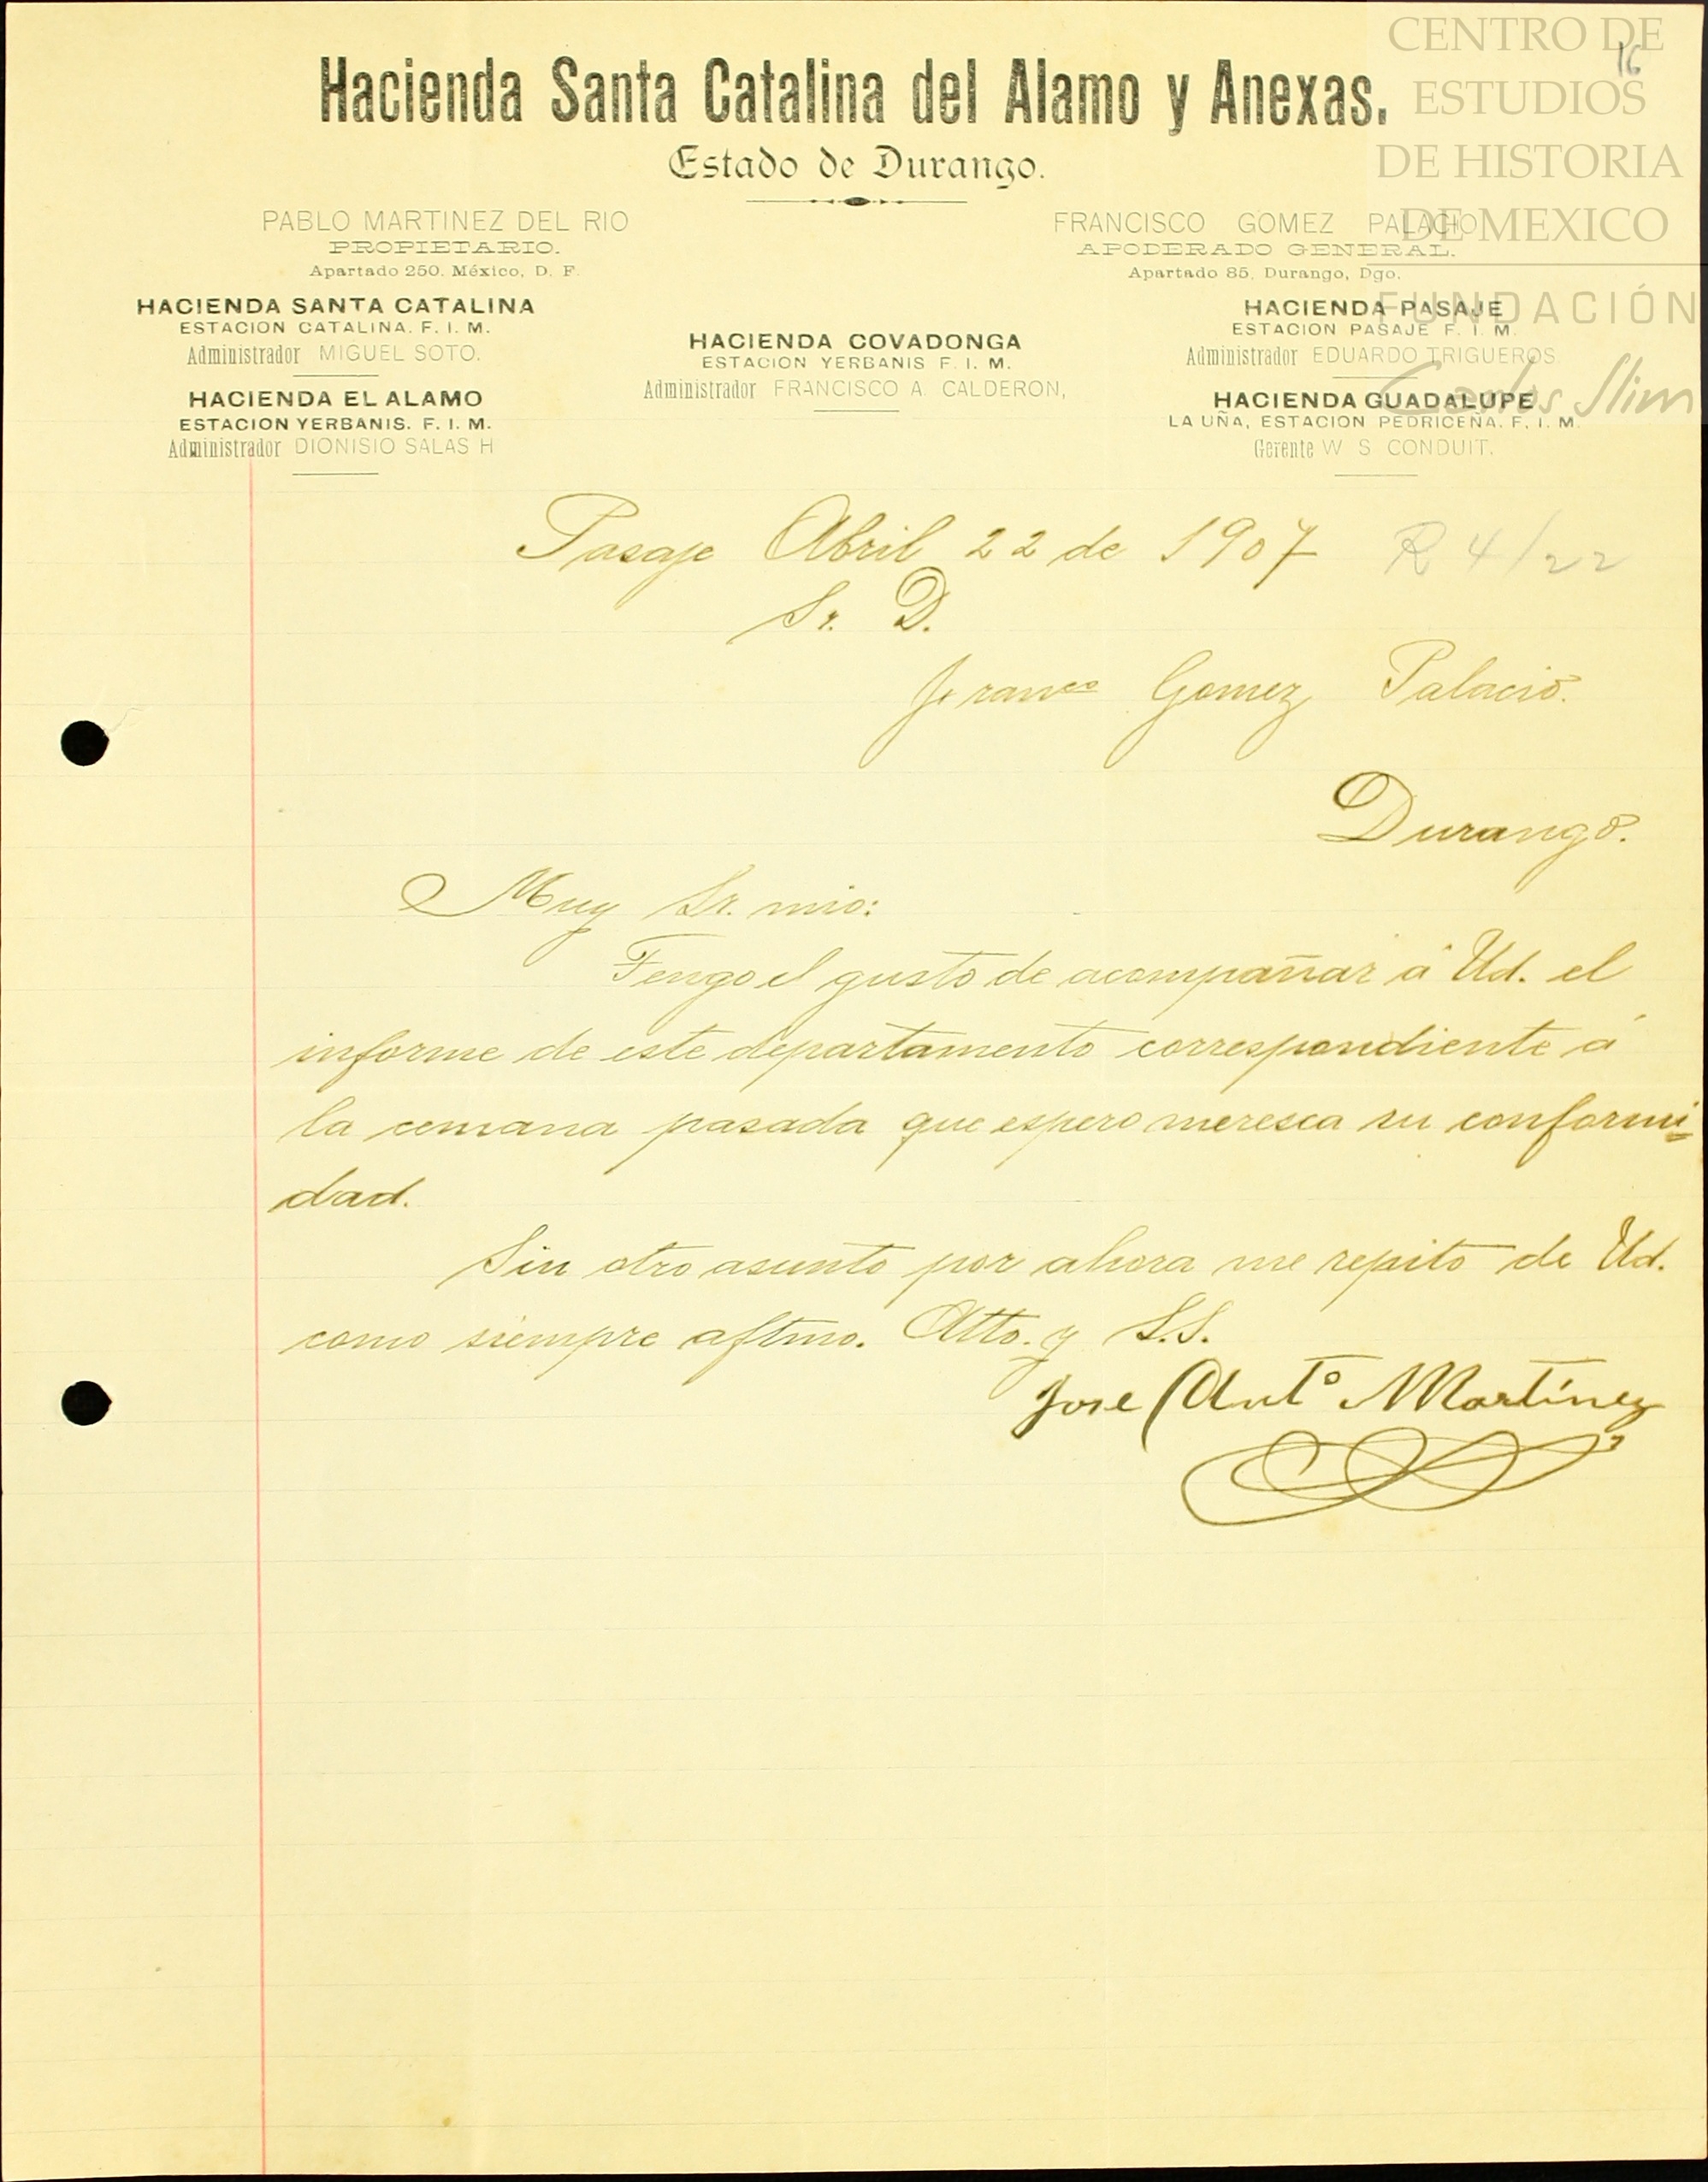 CENTRO DE
ESTUDIOS
DE HISTORIA
DE MEXICO
FUNDACIÓN
Carlos Slim
16
Hacienda Santa Catalina del Alamo y Anexas.
Estado de Durango.
PABLO MARTINEZ DEL RIO
PROPIETARIO.
Apartado 250. México, D. F.
FRANCISCO GOMEZ PALACIO
APODERADO GENERAL.
Apartado 85. Durango, Dgo.
HACIENDA SANTA CATALINA
ESTACION CATALINA. F. I. M.
Administrador MIGUEL SOTO.
HACIENDA EL ALAMO
ESTACION YERBANIS. F. I. M.
Administrador DIONISIO SALAS H
HACIENDA COVADONGA
ESTACION YERBANIS F. I. M.
Administrador FRANCISCO A. CALDERON,
HACIENDA PASAJE
ESTACION PASAJE F. I. M.
Administrador EDUARDO TRIGUEROS.
HACIENDA GUADALUPE
LA UÑA, ESTACION PEDRICEÑA. F. I. M.
Gerente W S CONDUIT.
Pasaje Abril 22 de 1907 R 4/22
Sr. D.
Franco Gomez Palacio.
Durango.
Muy Sr. mio:
Tengo el gusto de acompañar á Ud. el
informe de este departamento correspondiente á
la cemana pasada que espero meresca su conformi=
dad.
Sin otro asunto por ahora me repito de Ud.
como siempre aftmo. Atto. y S.S.
Jose Anto Martínez